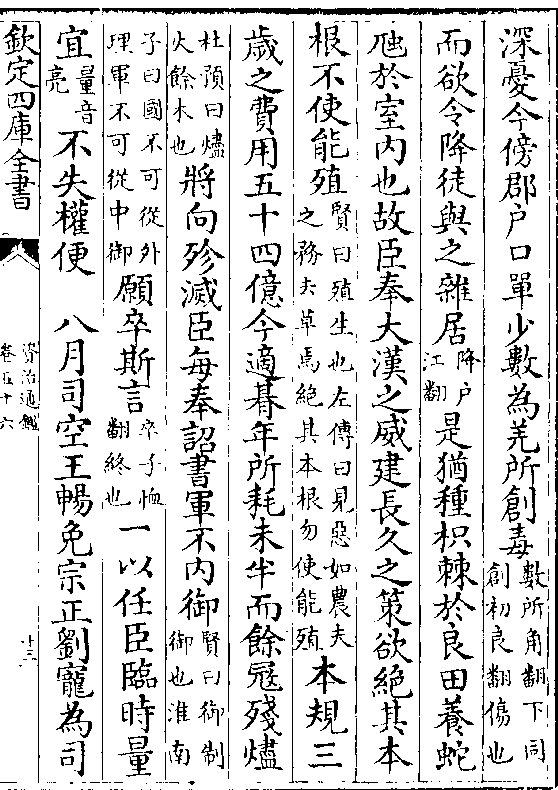 深憂今傍郡戶口單少數為羌所創毒數所角翻下同創初良翻傷也
而欲令降徒與之雜居降戶江翻是猶種枳棘於良田養蛇
虺於室内也故臣奉大漢之威建長久之策欲絶其本
根不使能殖賢曰殖生也左傳曰見惡如農夫之務去草焉絶其本根勿使能殖本規三
歲之費用五十四億今適朞年所耗未半而餘冦殘燼
杜預曰燼火餘木也將向殄滅臣每奉詔書軍不内御賢曰御制御也淮南
子曰國不可從外理軍不可從中御願卒斯言卒子恤翻終也一以任臣臨時量
宜量音亮不失權便　八月司空王暢免宗正劉寵為司
欽定四庫全書
資治通鑑
卷五十六
十三